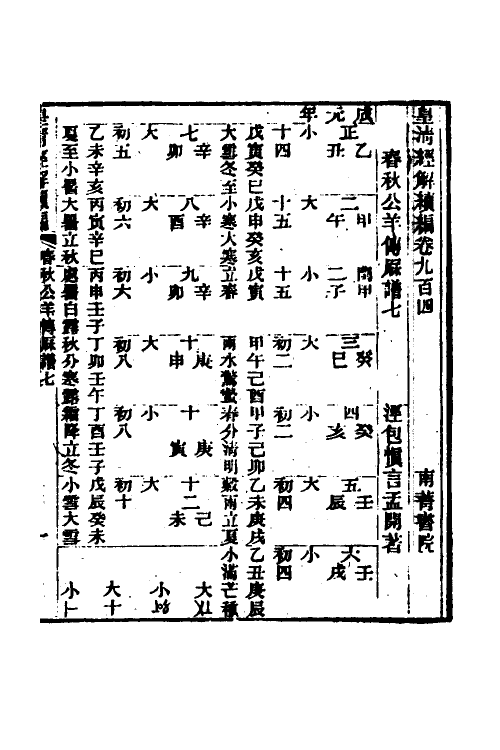 皇清經解續編卷九百四
南菁書院
春秋公羊傳厤譜七
涇包慎言孟開著
成元年
正 乙丑 小 十四
二 甲午 大 十五
閏 甲子 小 十五
三 癸巳 大 初二
四 癸亥 小 初二
五 壬辰 大 初四
六 壬戌 小 初四
戊寅癸巳戊申癸亥戊寅
甲午己酉甲子己卯乙未庚戌乙丑庚辰
大雪冬至小寒大寒立春
雨水驚蟄春分清明穀雨立夏小滿芒種
七 辛卯 大 初五
八 辛酉 大 初六
九 辛卯 小 初六
十 庚申 大 初八
十 庚寅 小 初八
十二 己未 大 初十
乙未辛亥丙寅辛巳丙申壬子丁卯壬午丁酉壬子戊辰癸未
夏至小暑大暑立秋處暑白露秋分寒露霜降立冬小雪大雪
皇清經解續編
春秋公羊傳厤譜七
一